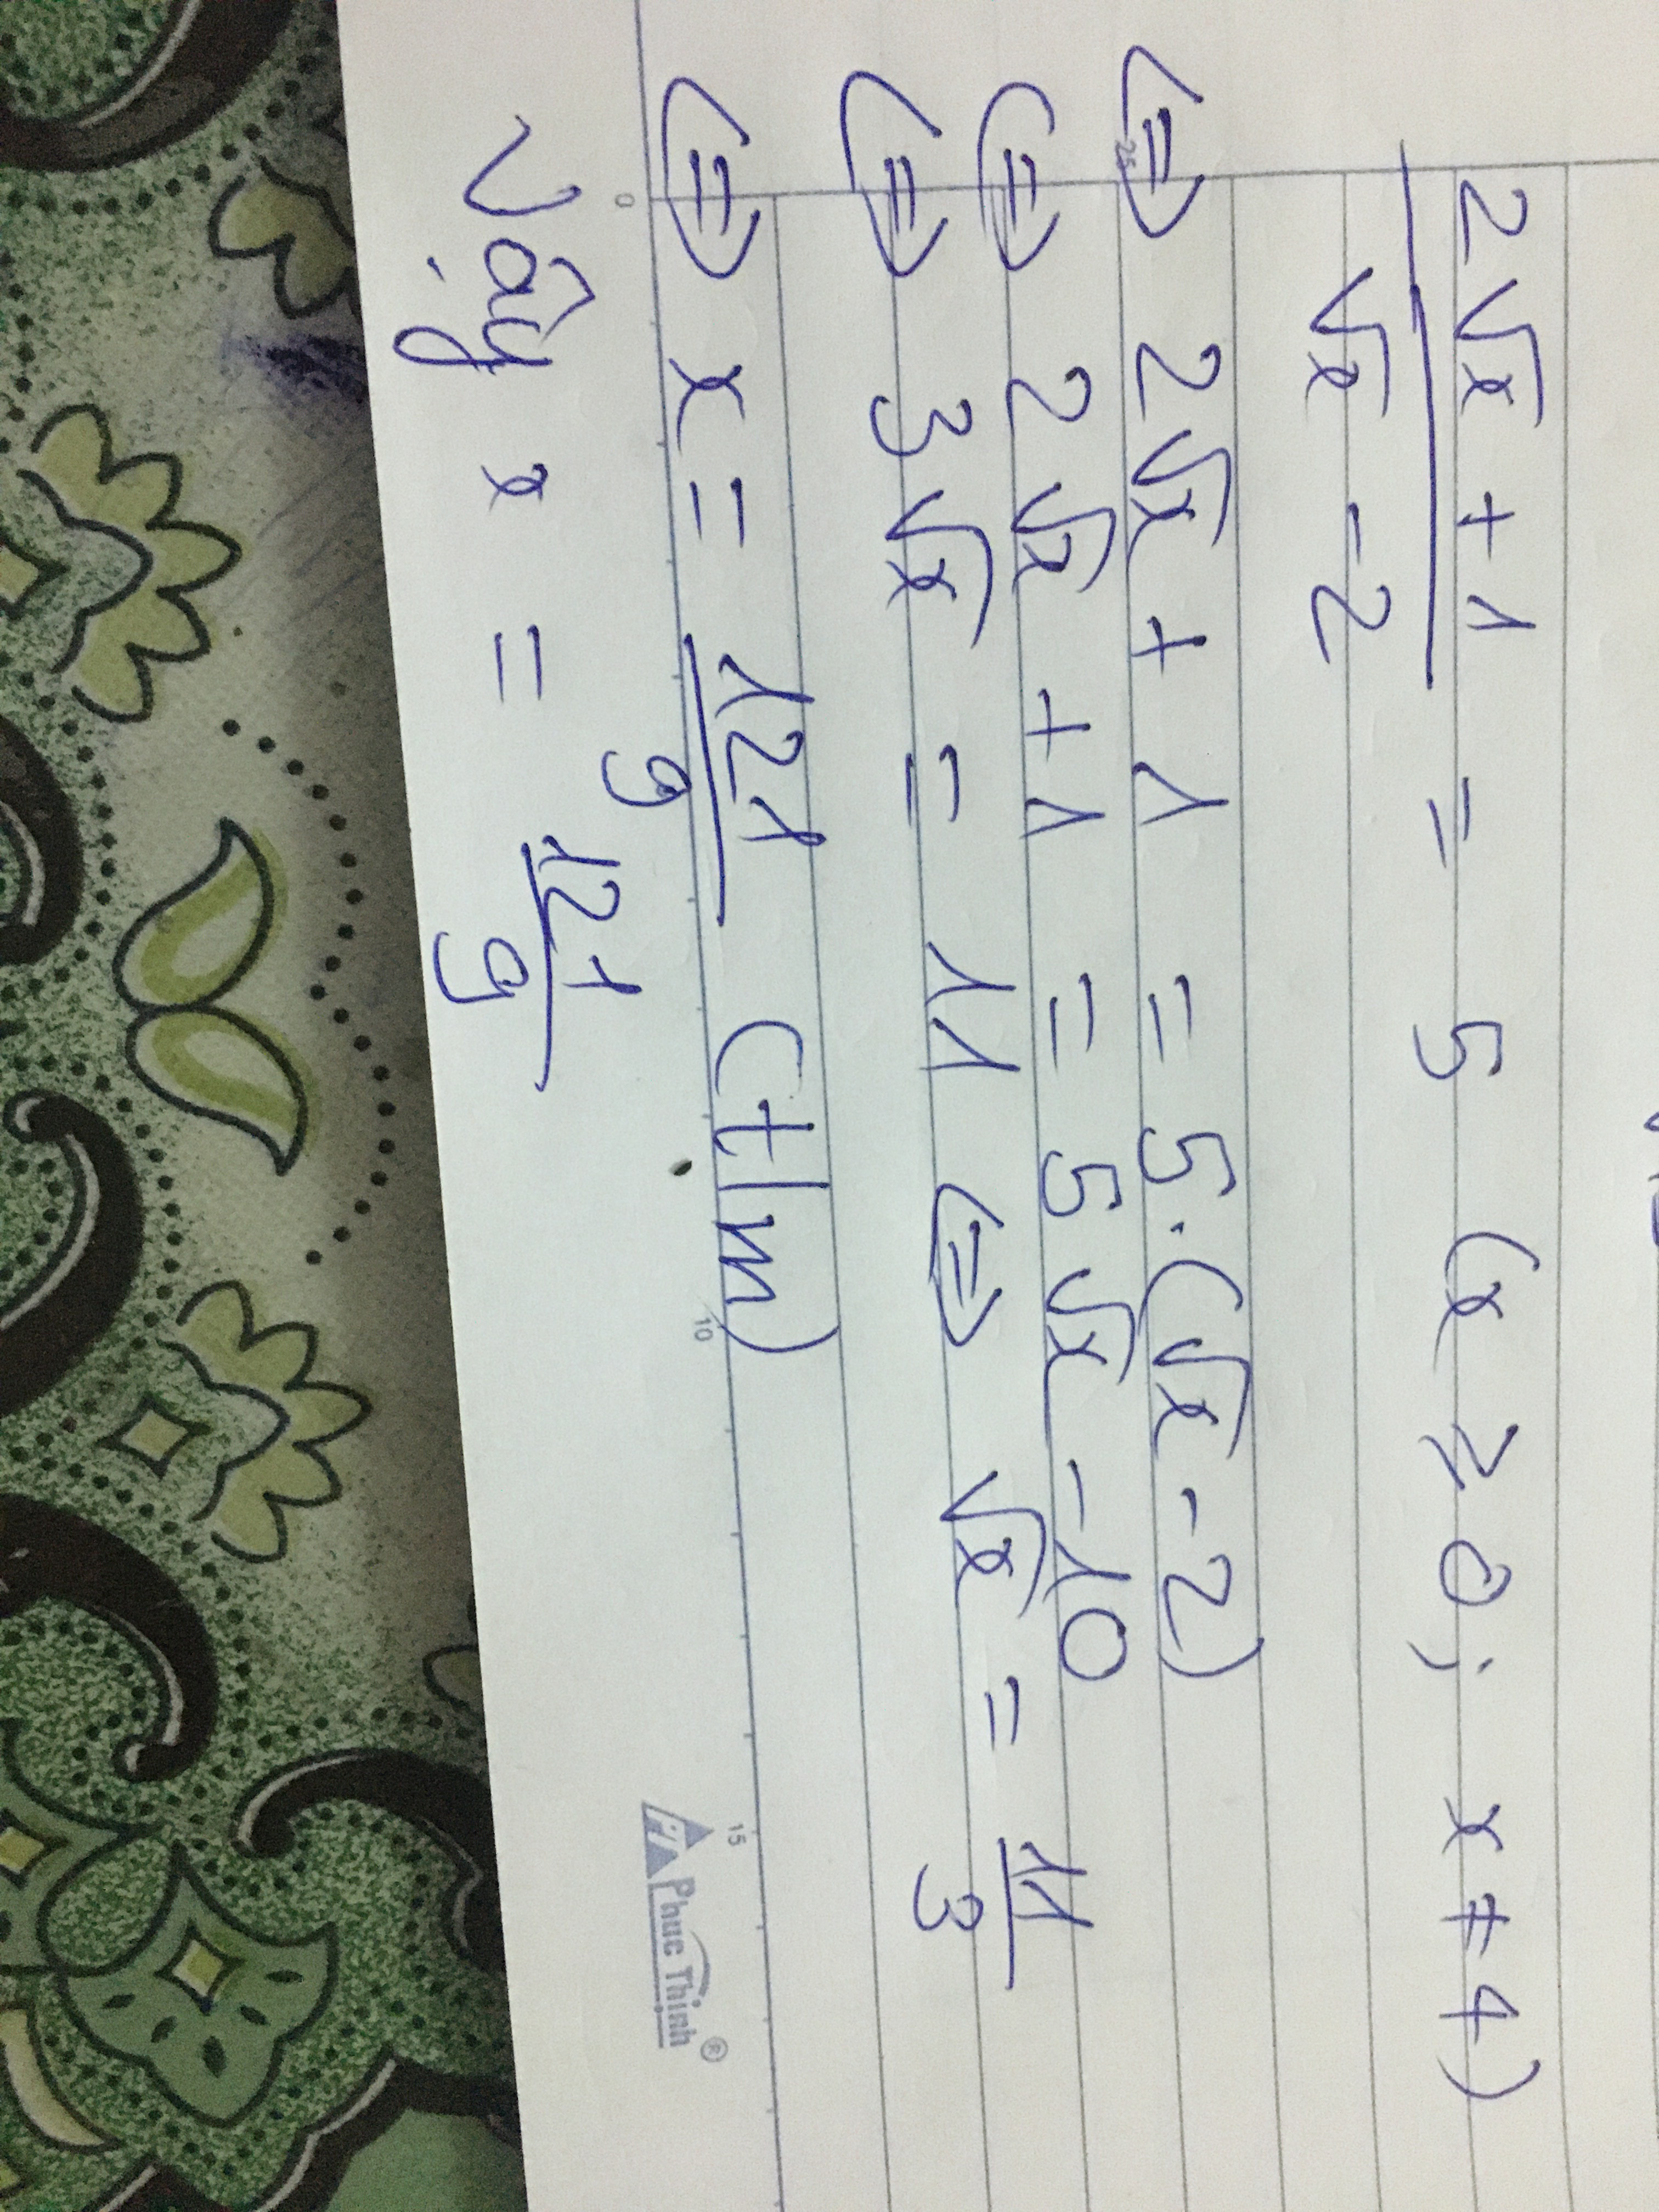 2√x + 1 / √x - 2 = 5 (x ≥ 0; x ≠ 4)
<=> 2√x + 1 = 5.(√x - 2)
<=> 2√x + 1 = 5√x - 10
<=> 3√x = 11 <=> √x = 11/3
<=> x = 121/9 (t/m)
Vậy x = 121/9
25
0 10 15
Phuc Thinh ®